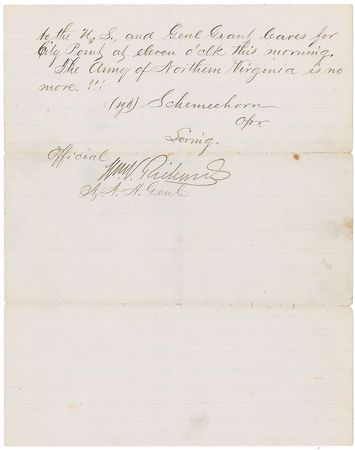 to the U. S., and Genl Grant leaves for
City Point at eleven o'clk this morning.
The Army of Northern Virginia is no
more. !!!
(sgd) Schemeehorn
Opr
Loring.
Official
A. A. A. Genl